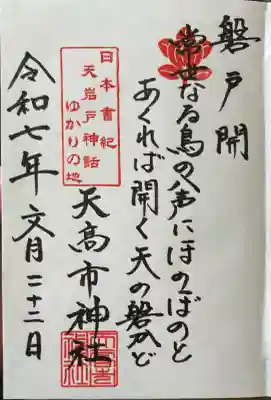 磐戸開
常世なる鳥の八声にほのぼのと
あくれば開く天の磐かど
日本書紀
天岩戸神話
ゆかりの地
天高市神社
令和七年文月二十二日